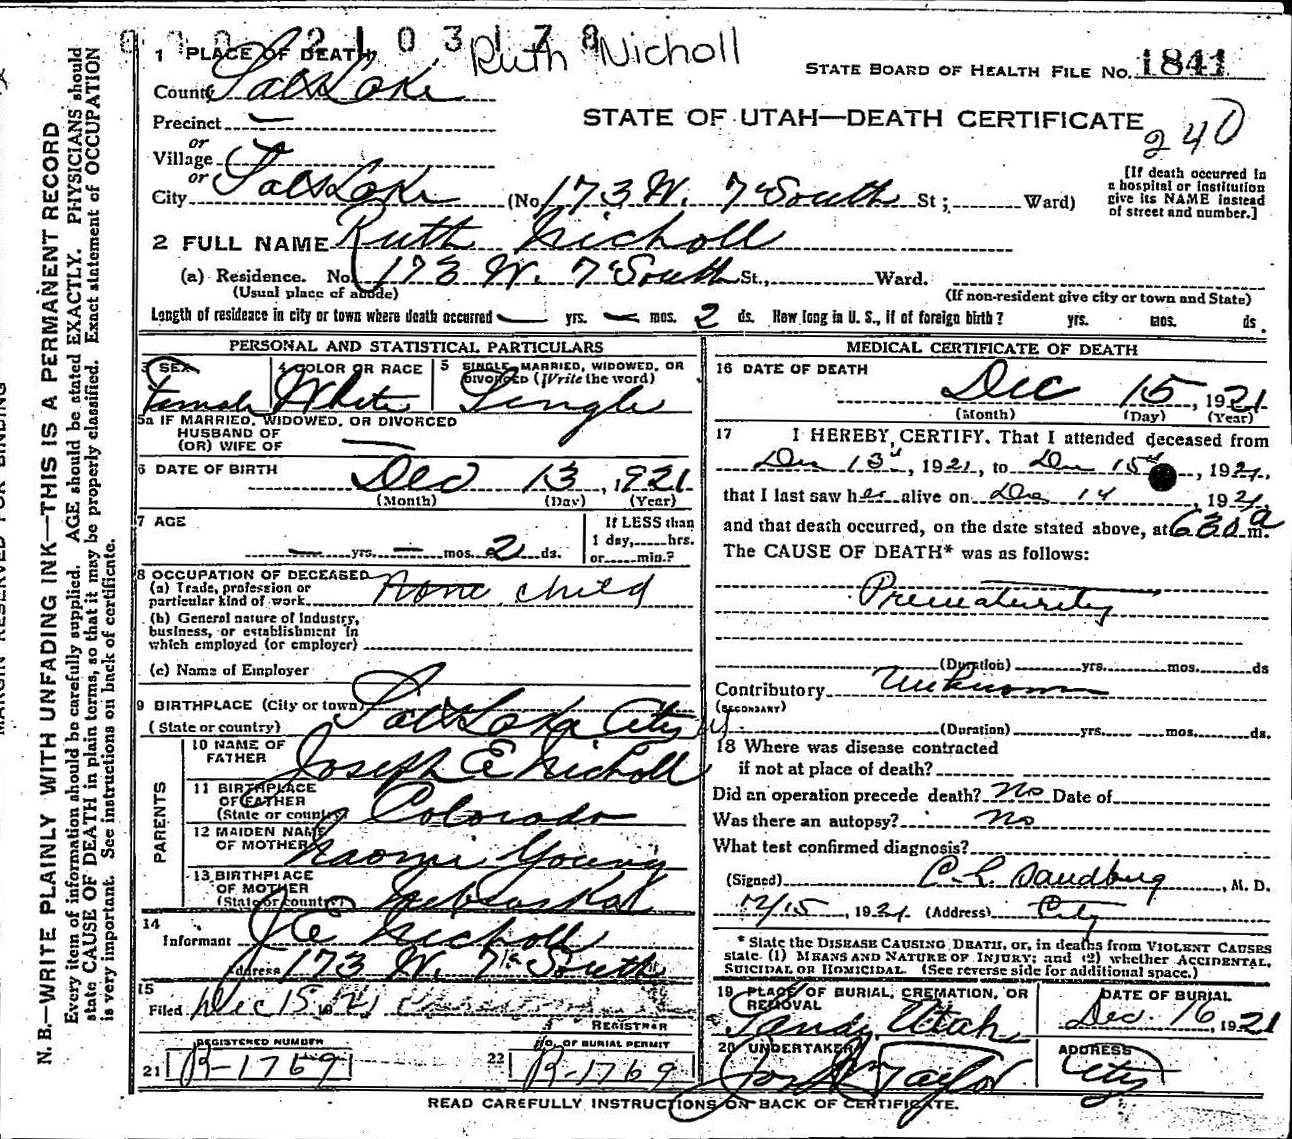 0002103178
Ruth Nicholl
1 PLACE OF DEATH
STATE BOARD OF HEALTH FILE No. 1841
County Salt Lake
Precinct —
STATE OF UTAH—DEATH CERTIFICATE
240
or
Village
or
City Salt Lake (No. 173 W. 7th South St ; Ward)
[If death occurred in
a hospital or institution
give its NAME instead
of street and number.]
2 FULL NAME Ruth Nicholl
(a) Residence. No. 173 W. 7th South St., Ward.
(Usual place of abode) (If non-resident give city or town and State)
Length of residence in city or town where death occurred — yrs. — mos. 2 ds. How long in U. S., if of foreign birth? yrs. mos. ds.
PERSONAL AND STATISTICAL PARTICULARS
3 SEX 4 COLOR OR RACE 5 SINGLE, MARRIED, WIDOWED, OR
DIVORCED (Write the word)
Female White Single
5a IF MARRIED, WIDOWED, OR DIVORCED
HUSBAND OF
(OR) WIFE OF —
6 DATE OF BIRTH Dec 13, 1921
(Month) (Day) (Year)
7 AGE
— yrs. — mos. 2 ds.
If LESS than
1 day, hrs.
or min.?
8 OCCUPATION OF DECEASED
(a) Trade, profession or
particular kind of work None child
(b) General nature of Industry,
business, or establishment in
which employed (or employer)
(c) Name of Employer
9 BIRTHPLACE (City or town) Salt Lake City
(State or country)
PARENTS
10 NAME OF
FATHER Joseph E Nicholl
11 BIRTHPLACE
OF FATHER
(State or country) Colorado
12 MAIDEN NAME
OF MOTHER Naomi Young
13 BIRTHPLACE
OF MOTHER
(State or country) Nebraska
14
Informant J E Nicholl
Address 173 W. 7th South
15
Filed Dec 15 1921
REGISTRAR
REGISTERED NUMBER
21 R-1769
No. OF BURIAL PERMIT
22 R-1769
MEDICAL CERTIFICATE OF DEATH
16 DATE OF DEATH
Dec 15, 1921
(Month) (Day) (Year)
17 I HEREBY CERTIFY. That I attended deceased from
Dec 13th, 1921, to Dec 15th, 1921,
that I last saw her alive on Dec 14 1921
and that death occurred, on the date stated above, at 630 a m.
The CAUSE OF DEATH* was as follows:
Prematurity
(Duration) yrs. mos. ds
Contributory Unknown
(SECONDARY)
(Duration) yrs. mos. ds.
18 Where was disease contracted
if not at place of death?
Did an operation precede death? No Date of
Was there an autopsy? No
What test confirmed diagnosis?
(Signed) C. L. Sandberg, M. D.
12/15, 1921 (Address) City
* State the DISEASE CAUSING DEATH, or, in deaths from VIOLENT CAUSES
state (1) MEANS AND NATURE OF INJURY; and (2) whether ACCIDENTAL,
SUICIDAL or HOMICIDAL. (See reverse side for additional space.)
19 PLACE OF BURIAL, CREMATION, OR
REMOVAL
Sandy Utah
DATE OF BURIAL
Dec. 16, 1921
20 UNDERTAKER
Taylor
ADDRESS
City
READ CAREFULLY INSTRUCTIONS ON BACK OF CERTIFICATE.
MARGIN RESERVED FOR BINDING
N. B.—WRITE PLAINLY WITH UNFADING INK—THIS IS A PERMANENT RECORD
Every item of information should be carefully supplied. AGE should be stated EXACTLY. PHYSICIANS should
state CAUSE OF DEATH in plain terms, so that it may be properly classified. Exact statement of OCCUPATION
is very important. See instructions on back of certificate.